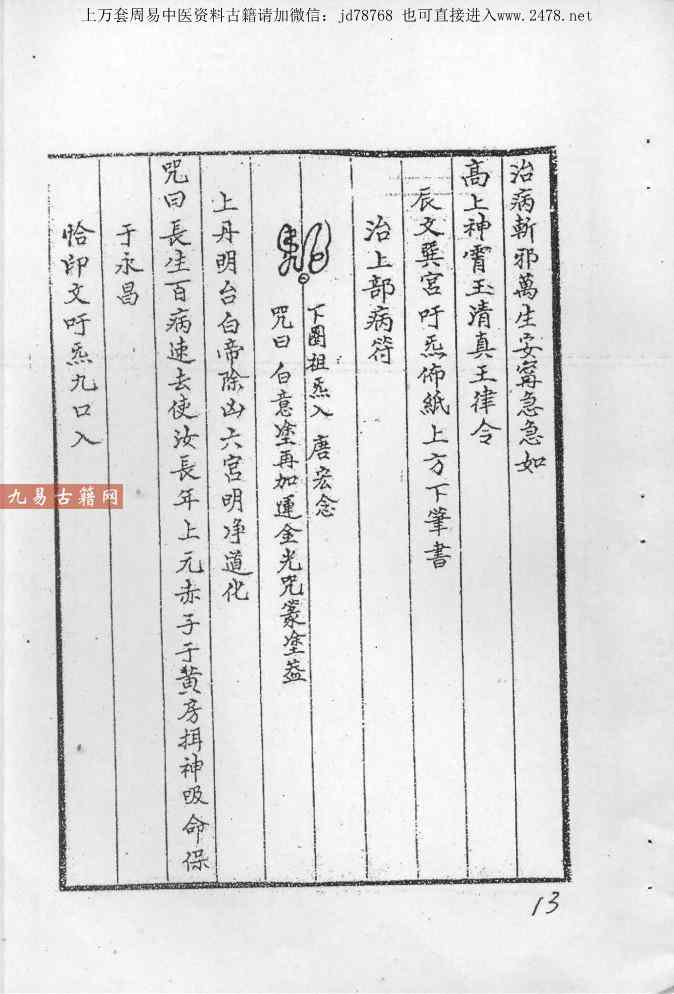 上万套周易中医资料古籍请加微信：jd78768 也可直接进入www.2478.net
治病斬邪萬生安寗急急如
高上神霄玉清真王律令
辰文巽宮吁炁佈紙上方下筆書
治上部病符
下圈祖炁入 唐宏念
咒曰 白意塗再加運金光咒篆塗蓋
上丹明台白帝除凶六宮明净道化
咒曰長生百病速去使汝長年上元赤子于黄房揖神吸命保
于永昌
恰印文吁炁九口入
九易古籍网
13